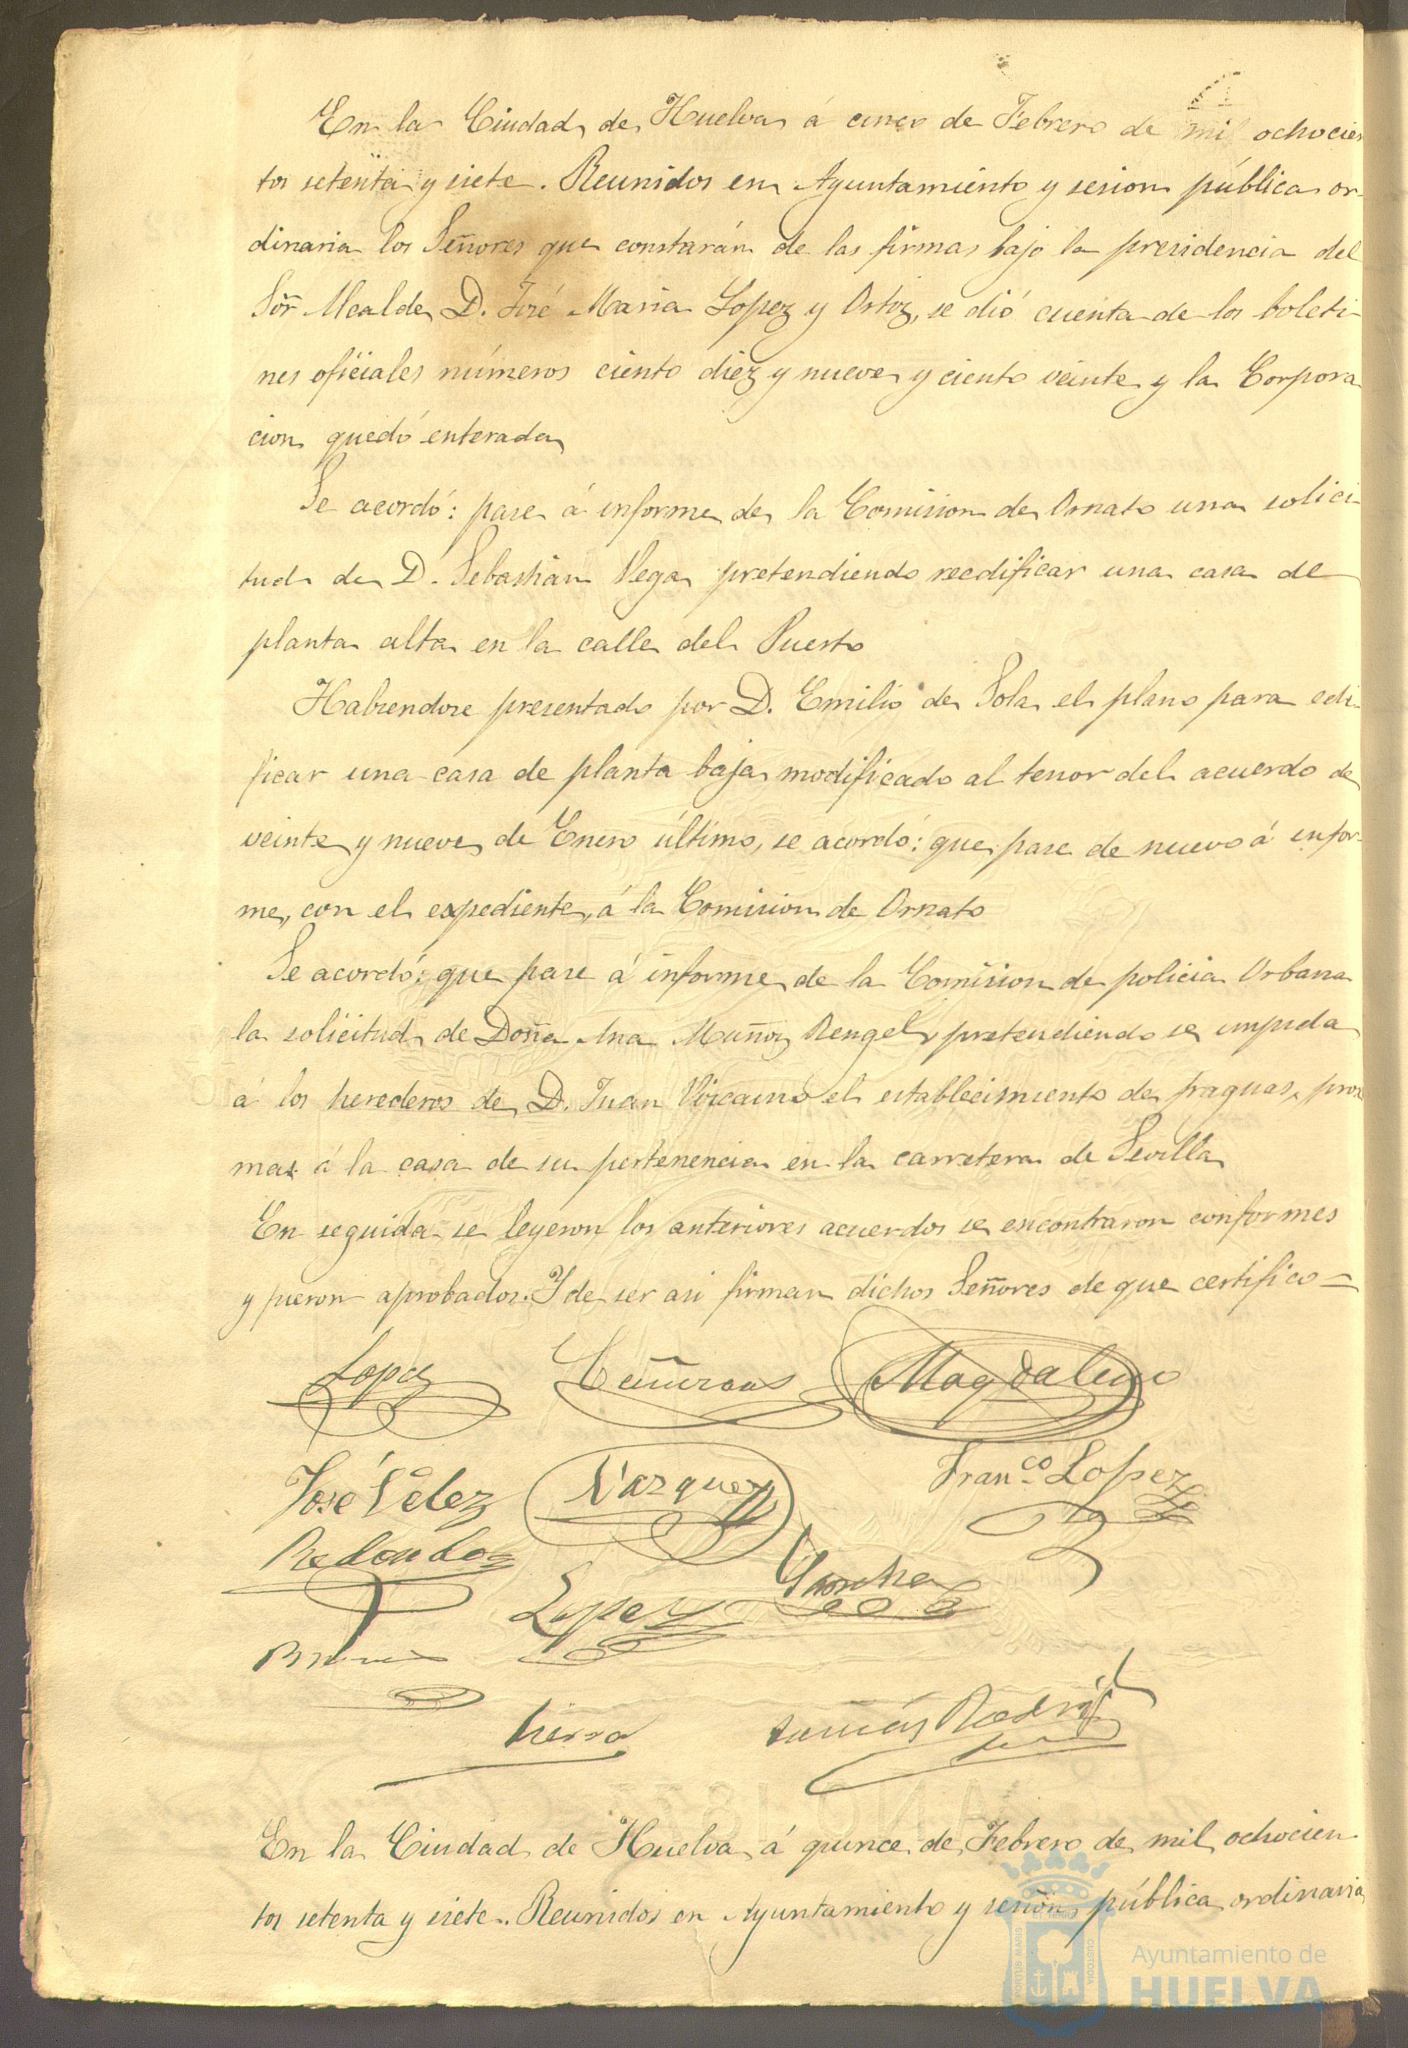 En la Ciudad de Huelva á cinco de Febrero de mil ochocien
tos setenta y siete. Reunidos en Ayuntamiento y sesion pública or-
dinaria los Señores que constarán de las firmas bajo la presidencia del
Sõr Alcalde D. José Maria Lopez y Ortiz, se dió cuenta de los boleti-
nes oficiales números ciento diez y nueve y ciento veinte y la Corpora
cion quedó enterada
Se acordó: pase á informe de la Comision de Ornato una solici-
tud de D. Sebastian Vega pretendiendo reedificar una casa de
planta alta en la calle del Puerto
Habiendose presentado por D. Emilio de Sola el plano para edi-
ficar una casa de planta baja modificado al tenor del acuerdo de
veinte y nueve de Enero último, se acordó: que pase de nuevo á infor-
me, con el expediente, á la Comision de Ornato
Se acordó: que pase á informe de la Comision de policia Urbana
la solicitud de Doña Ana Muñoz Rengel, pretendiendo se impida
á los herederos de D. Juan Vizcaino el establecimiento de fraguas, proxi
mas á la casa de su pertenencia en la carretera de Sevilla
En seguida se leyeron los anteriores acuerdos se encontraron conformes
y fueron aprobados. Y de ser asi firman dichos Señores de que certifico=
Lopez Magdaleno
José Velez Vazquez Fran.co Lopez
Redondo
Lopez
Tomás Rodri
En la Ciudad de Huelva á quince de Febrero de mil ochocien
tos setenta y siete. Reunidos en Ayuntamiento y sesión pública ordinaria
Ayuntamiento de
HUELVA